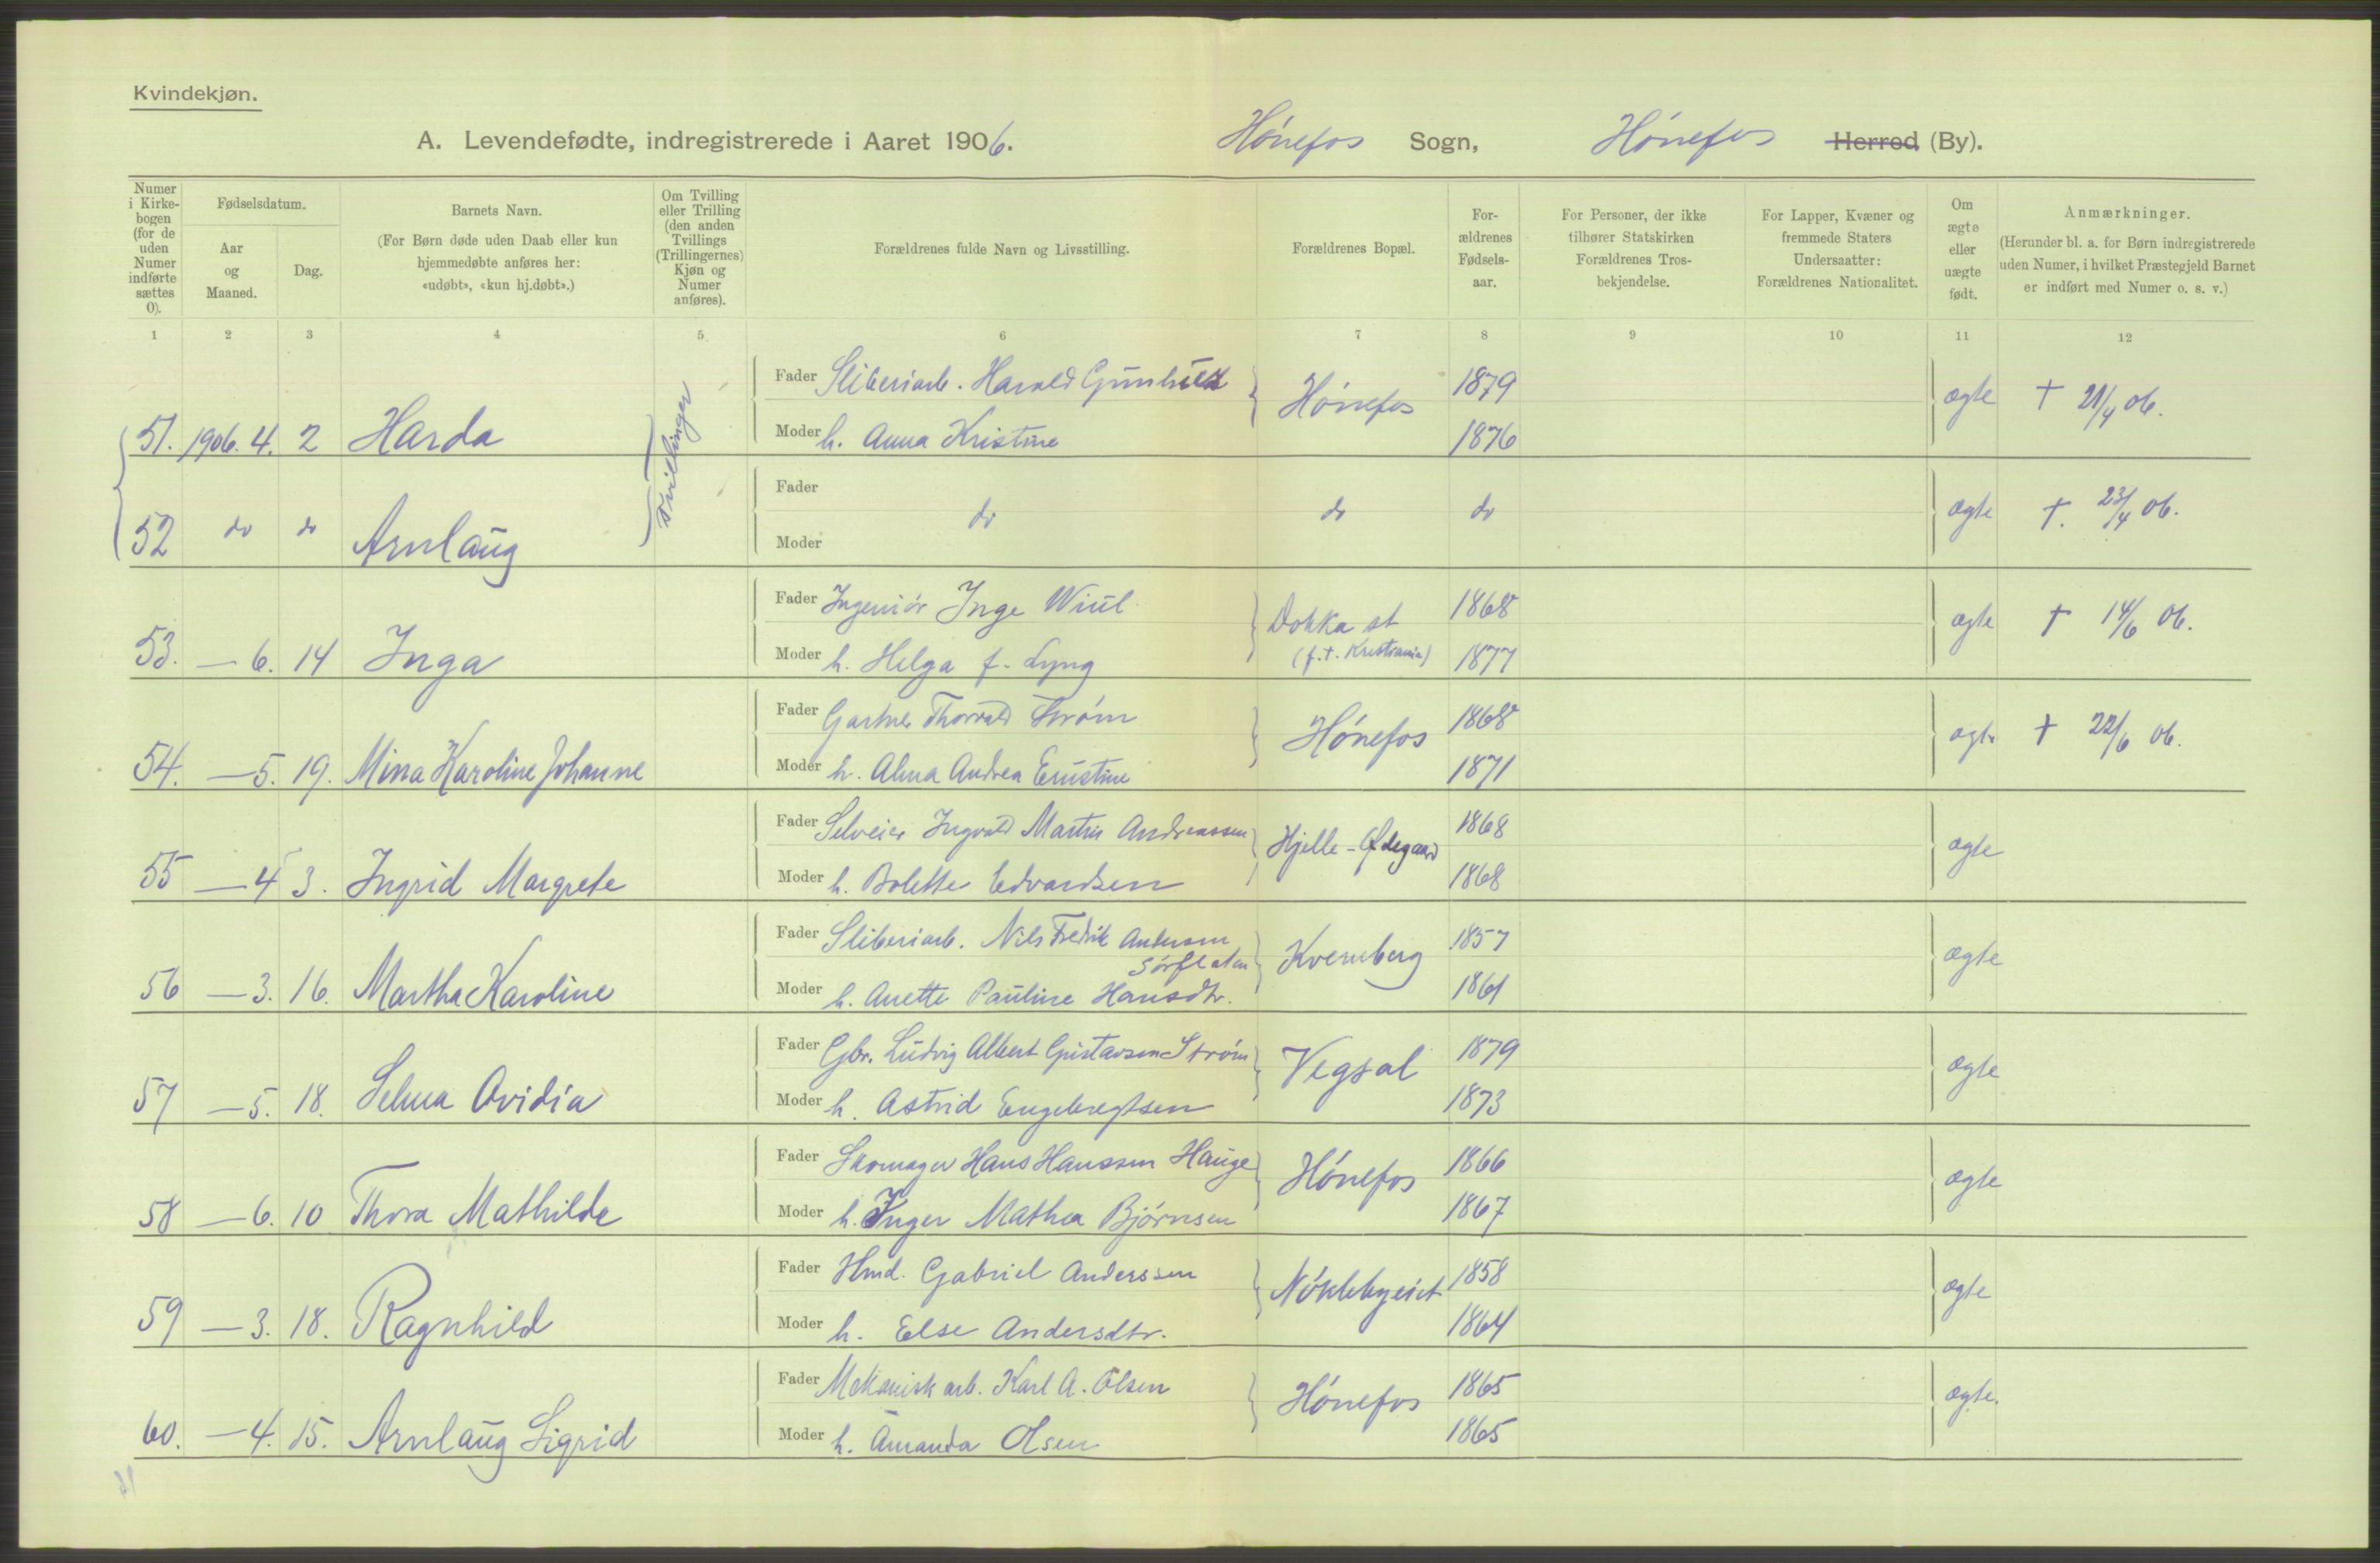 Kvindekjøn.
A. Levendefødte, indregistrerede i Aaret 1906. Hónefos Sogn, Hónefos Herred (By).
Numer i Kirke-bogen (for de uden Numer indførte sættes 0).
Fødselsdatum.
Aar og Maaned.
Dag.
Barnets Navn.
(For Børn døde uden Daab eller kun hjemmedøbte anføres her: «udøbt», «kun hj.døbt».)
Om Tvilling eller Trilling (den anden Tvillings (Trillingernes) Kjøn og Numer anføres).
Forældrenes fulde Navn og Livsstilling.
Forældrenes Bopæl.
For-ældrenes Fødsels-aar.
For Personer, der ikke tilhører Statskirken Forældrenes Tros-bekjendelse.
For Lapper, Kvæner og fremmede Staters Undersaatter: Forældrenes Nationalitet.
Om ægte eller uægte født.
Anmærkninger.
(Herunder bl. a. for Børn indregistrerede uden Numer, i hvilket Præstegjeld Barnet er indført med Numer o. s. v.)
1 2 3 4 5 6 7 8 9 10 11 12
Fader Sliberiarb. Harald 1879
51. 1906. 4. 2 Harda Tvillinger Hónefos ægte † 21/4 06.
Moder h. Anna Kristine 1876
Fader
52 do do Arnlaug do do do ægte †. 23/4 06.
Moder
Fader Ingeniór Inge Wiul 1868
53. — 6. 14 Inga Dokka st (f.t. Kristiania) ægte † 14/6 06.
Moder h. Helga f. Lyng 1877
Fader Gartner Thorvald Stróm 1868
54. — 5. 19. Mina Karoline Johanne Hónefos ægte † 22/6 06.
Moder h. Alma Andrea Ernstine 1871
Fader Selveier Ingvald Martin Andreassen 1868
55 — 4 3. Ingrid Margrete Hjelle-Ødegaard ægte
Moder h. Bolette Edvardsen 1868
Fader Sliberiarb. Nils Fredrik Andersen Sórflaten 1857
56 — 3. 16. Martha Karoline Kvernberg ægte
Moder h. Anette Pauline Hansdtr. 1861
Fader Gbr. Ludvig Albert Gustavsen Stróm 1879
57 — 5. 18. Selma Ovidia Vegsal ægte
Moder h. Astrid Engebregtsen 1873
Fader Skomager Hans Hanssen Hauge 1866
58 — 6. 10 Thora Mathilde Hónefos ægte
Moder h. Inger Mathea Bjórnsen 1867
Fader Hmd. Gabriel Anderssen 1858
59 — 3. 18. Ragnhild ægte
Moder h. Else Andersdtr. 1864
Fader Mekanisk arb. Karl A. Olsen 1865
60. — 4. 15. Arnlaug Sigrid Hónefos ægte.
Moder h. Amanda Olsen 1865